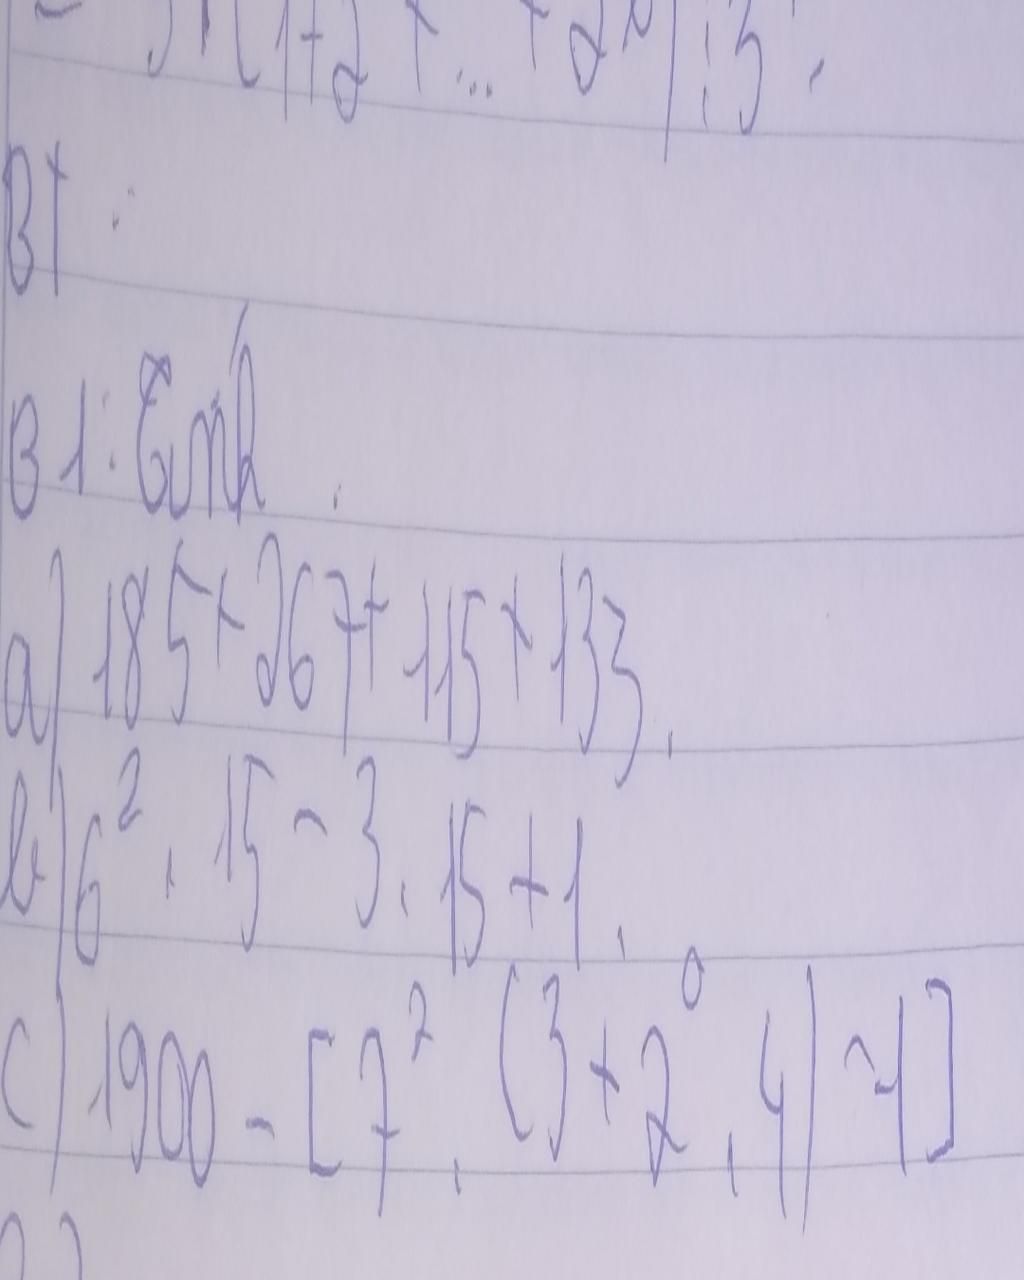 (1+2+...+2) ⋮ 3.
BT:
B1: Tính.
a) 185+267+115+133.
b) 6². 15 - 3. 15 + 1.
c) 1900 - [7². (3 + 2⁰. 4) - 1]